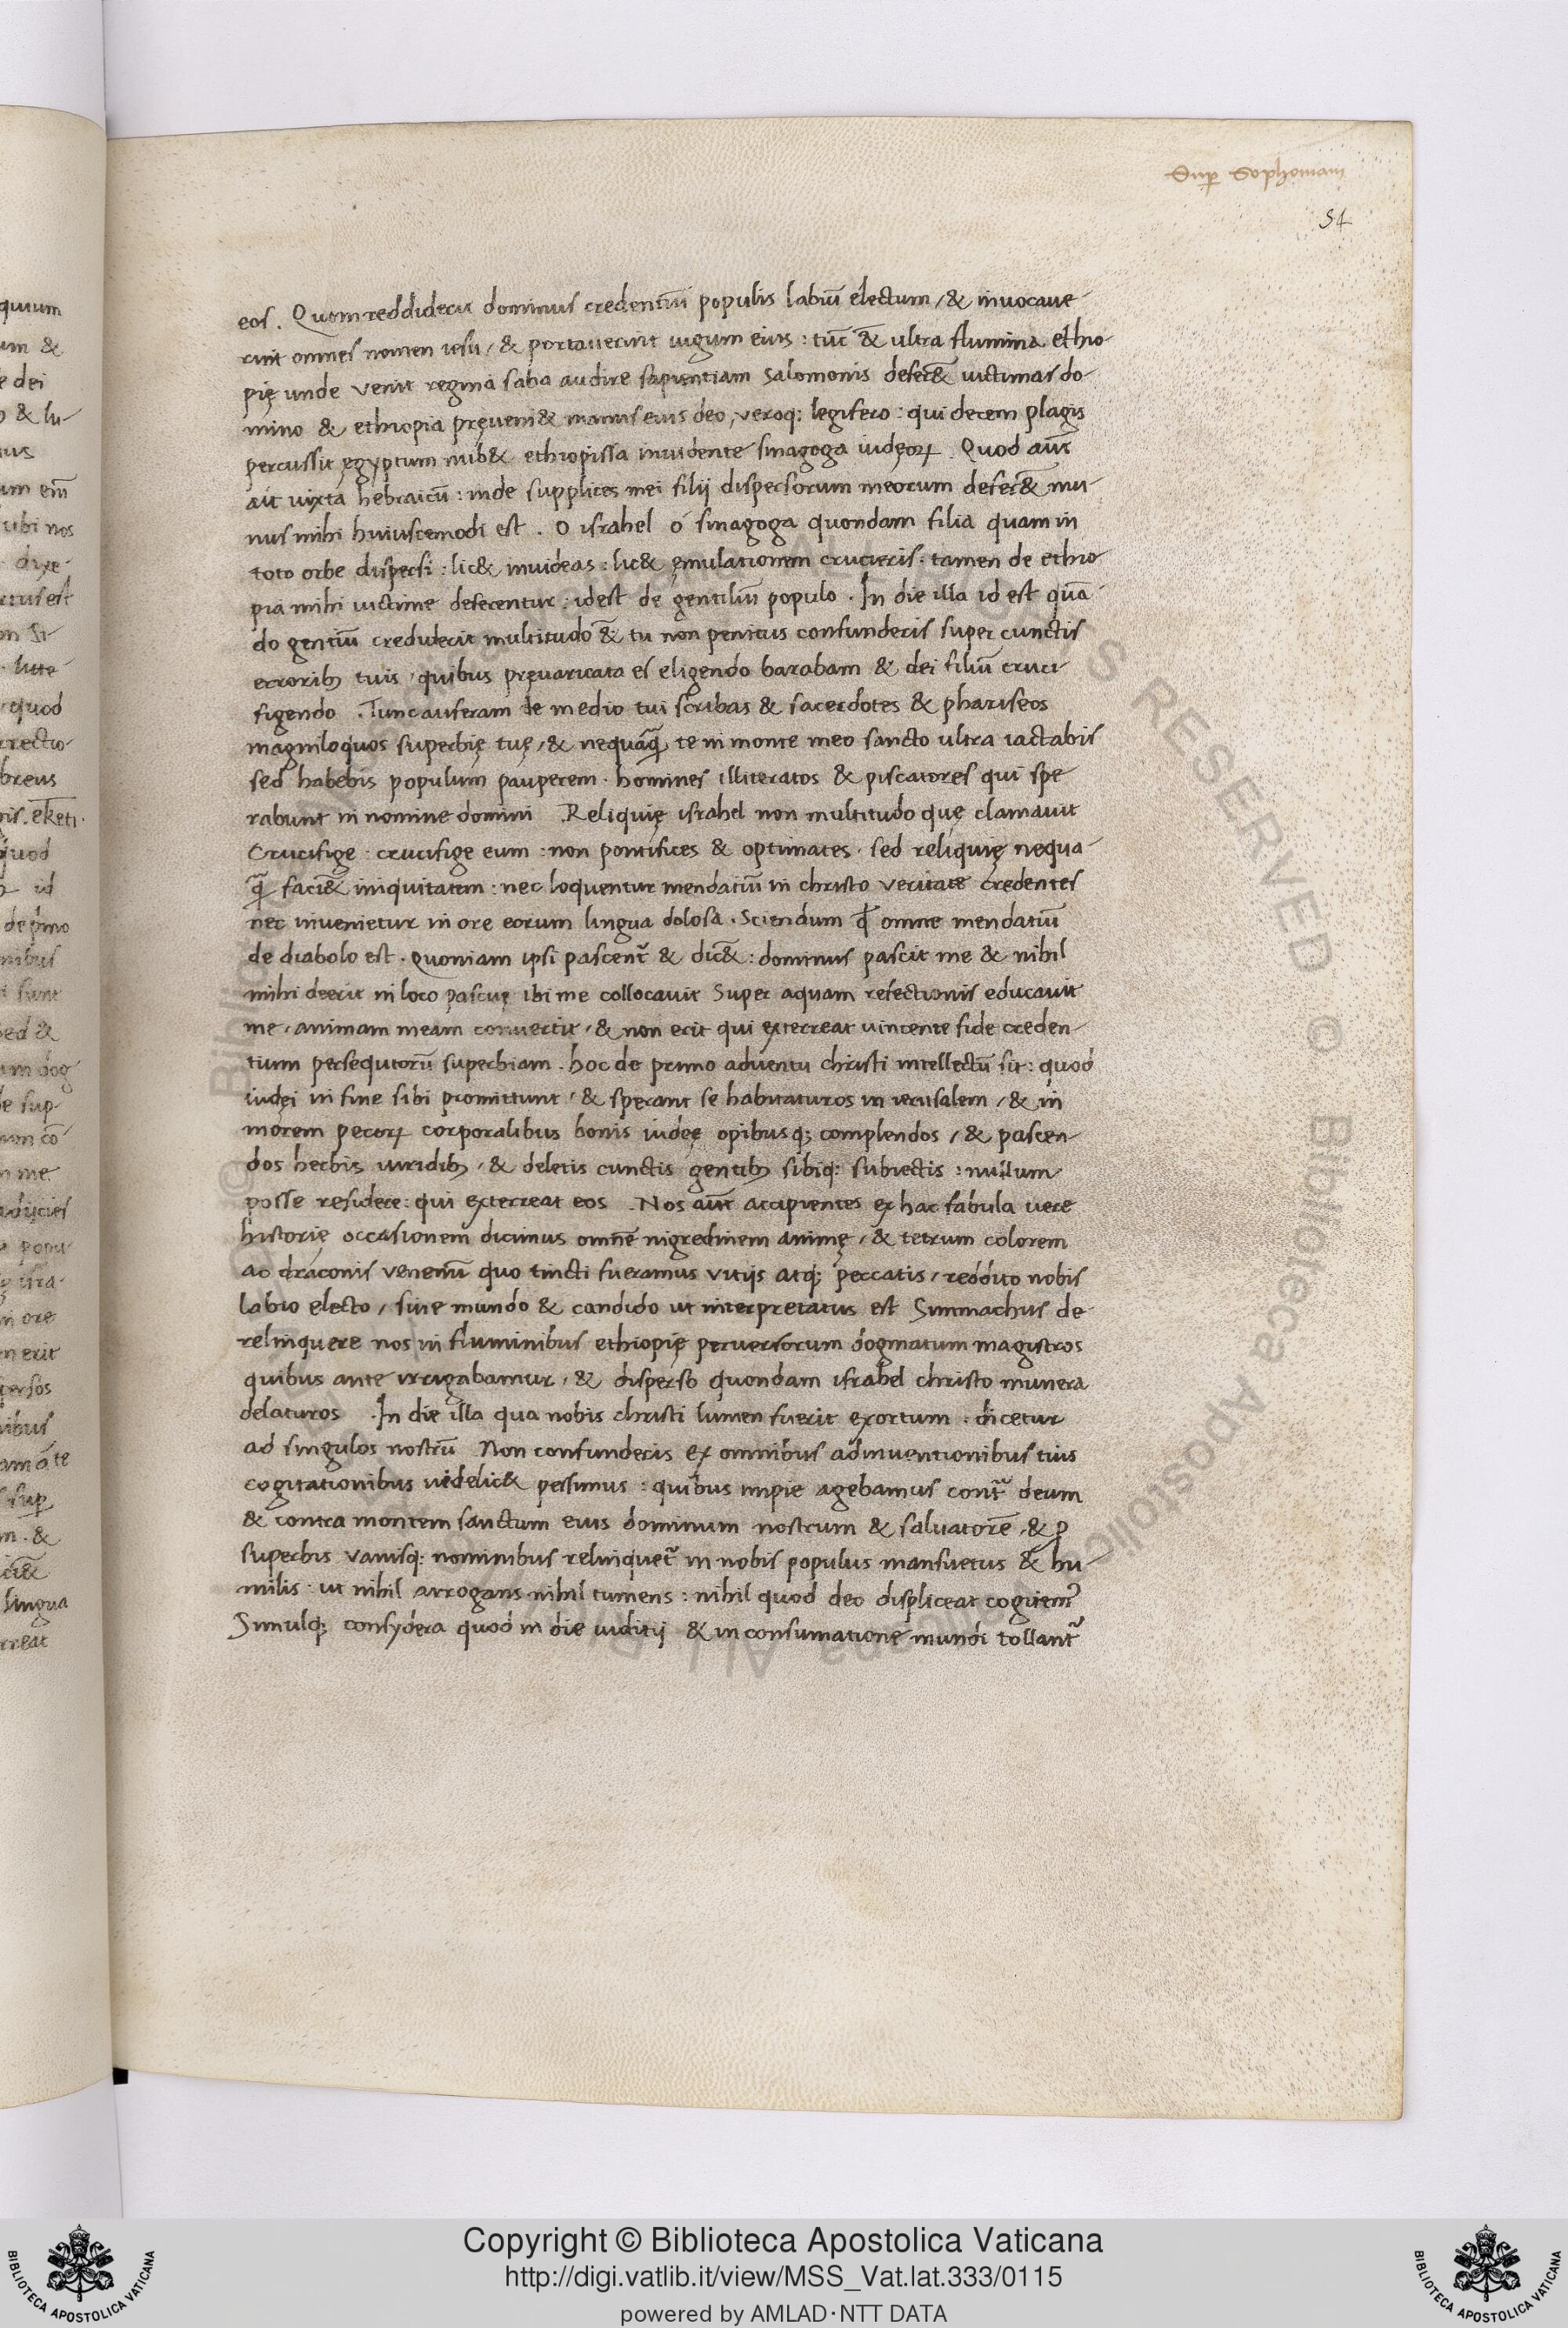 Sup Sophoniam
54
eos. Quom reddiderit dominus credentiũ populis labiũ electum / & invocave-
rint omnes nomen iesu / & portaverint iugum eius : tũc & ultra flumina ethio-
pię unde venit regina saba audire sapientiam Salomonis defer& victimas do-
mino & ethiopia pręveni& manus eius deo, veroq; legifero : qui decem plagis
percussit ęgyptum nub& ethiopissa invidente sinagoga iudęoꝝ. Quod aũt
ait iuxta hebraicũ : inde supplices mei filij dispersorum meorum defer& mu-
nus mihi huiuscemodi est . O israhel o sinagoga quondam filia quam in
toto orbe dispersi : lic& invideas : lic& ęmulationem crucieris . tamen de ethio-
pia mihi victime deferentur : idest de gentiliũ populo . In die illa id est quã-
do gentiũ crediderit multitudo & tu non penitus confunderis super cunctis
erroribꝫ tuis / quibus pręvaricata es eligendo barabam & dei filiũ cruci-
figendo . Tunc auferam de medio tui scribas & sacerdotes & phariseos
magniloquos superbię tuę / & nequaq̃ te in monte meo sancto ultra iactabis
sed habebis populum pauperem . homines illiteratos & piscatores qui spe
rabunt in nomine domini . Reliquię israhel non multitudo quę clamavit
Crucifige : crucifige eum : non pontifices & optimates . sed reliquię nequa-
q̃ faci& iniquitatem : nec loquentur mendatiũ in christo veritate credentes
nec invenietur in ore eorum lingua dolosa . Sciendum ꝙ omne mendatiũ
de diabolo est . Quoniam ipsi pascent᷑ & dic& : dominus pascit me & nihil
mihi deerit in loco pascuę ibi me collocavit Super aquam refectionis educavit
me / animam meam convertit / & non erit qui exterreat vincente fide creden-
tium persequtorũ superbiam . hoc de primo adventu christi intellectũ sit : quod
iudęi in fine sibi promittunt / & sperant se habitaturos in ierusalem / & in
morem pecoꝝ corporalibus bonis iudeę opibusq; complendos / & pascen-
dos herbis viridibꝫ / & deletis cunctis gentibꝫ sibiq; subiectis : nullum
posse residere : qui exterreat eos . Nos aũt accipientes ex hac fabula vere
historię occasionem dicimus omnẽ nigredinem animę / & tetrum colorem
ac draconis venenũ quo tincti fueramus vitijs atq; peccatis / reddito nobis
labio electo / sive mundo & candido ut interpretatus est Simmachus de
relinquere nos in fluminibus ethiopię perversorum dogmatum magistros
quibus ante irrigabamur / & disperso quondam israhel christo munera
delaturos . In die illa qua nobis christi lumen fuerit exortum : dicetur
ad singulos nostrũ Non confunderis ex omnibus adinventionibus tuis
cogitationibus videlic& pessimus : quibus impie agebamus cont᷑ deum
& contra montem sanctum eius dominum nostrum & salvatorẽ / & p
superbis vanisq; nominibus relinquet᷑ in nobis populus mansuetus & hu-
milis : ut nihil arrogans nihil tumens : nihil quod deo displiceat cogitem᷑
Simulq; consydera quod in die iuditij & in consumatione mundi tollant᷑
Copyright © Biblioteca Apostolica Vaticana
http://digi.vatlib.it/view/MSS_Vat.lat.333/0115
powered by AMLAD·NTT DATA
BIBLIOTECA APOSTOLICA VATICANA
BIBLIOTECA APOSTOLICA VATICANA